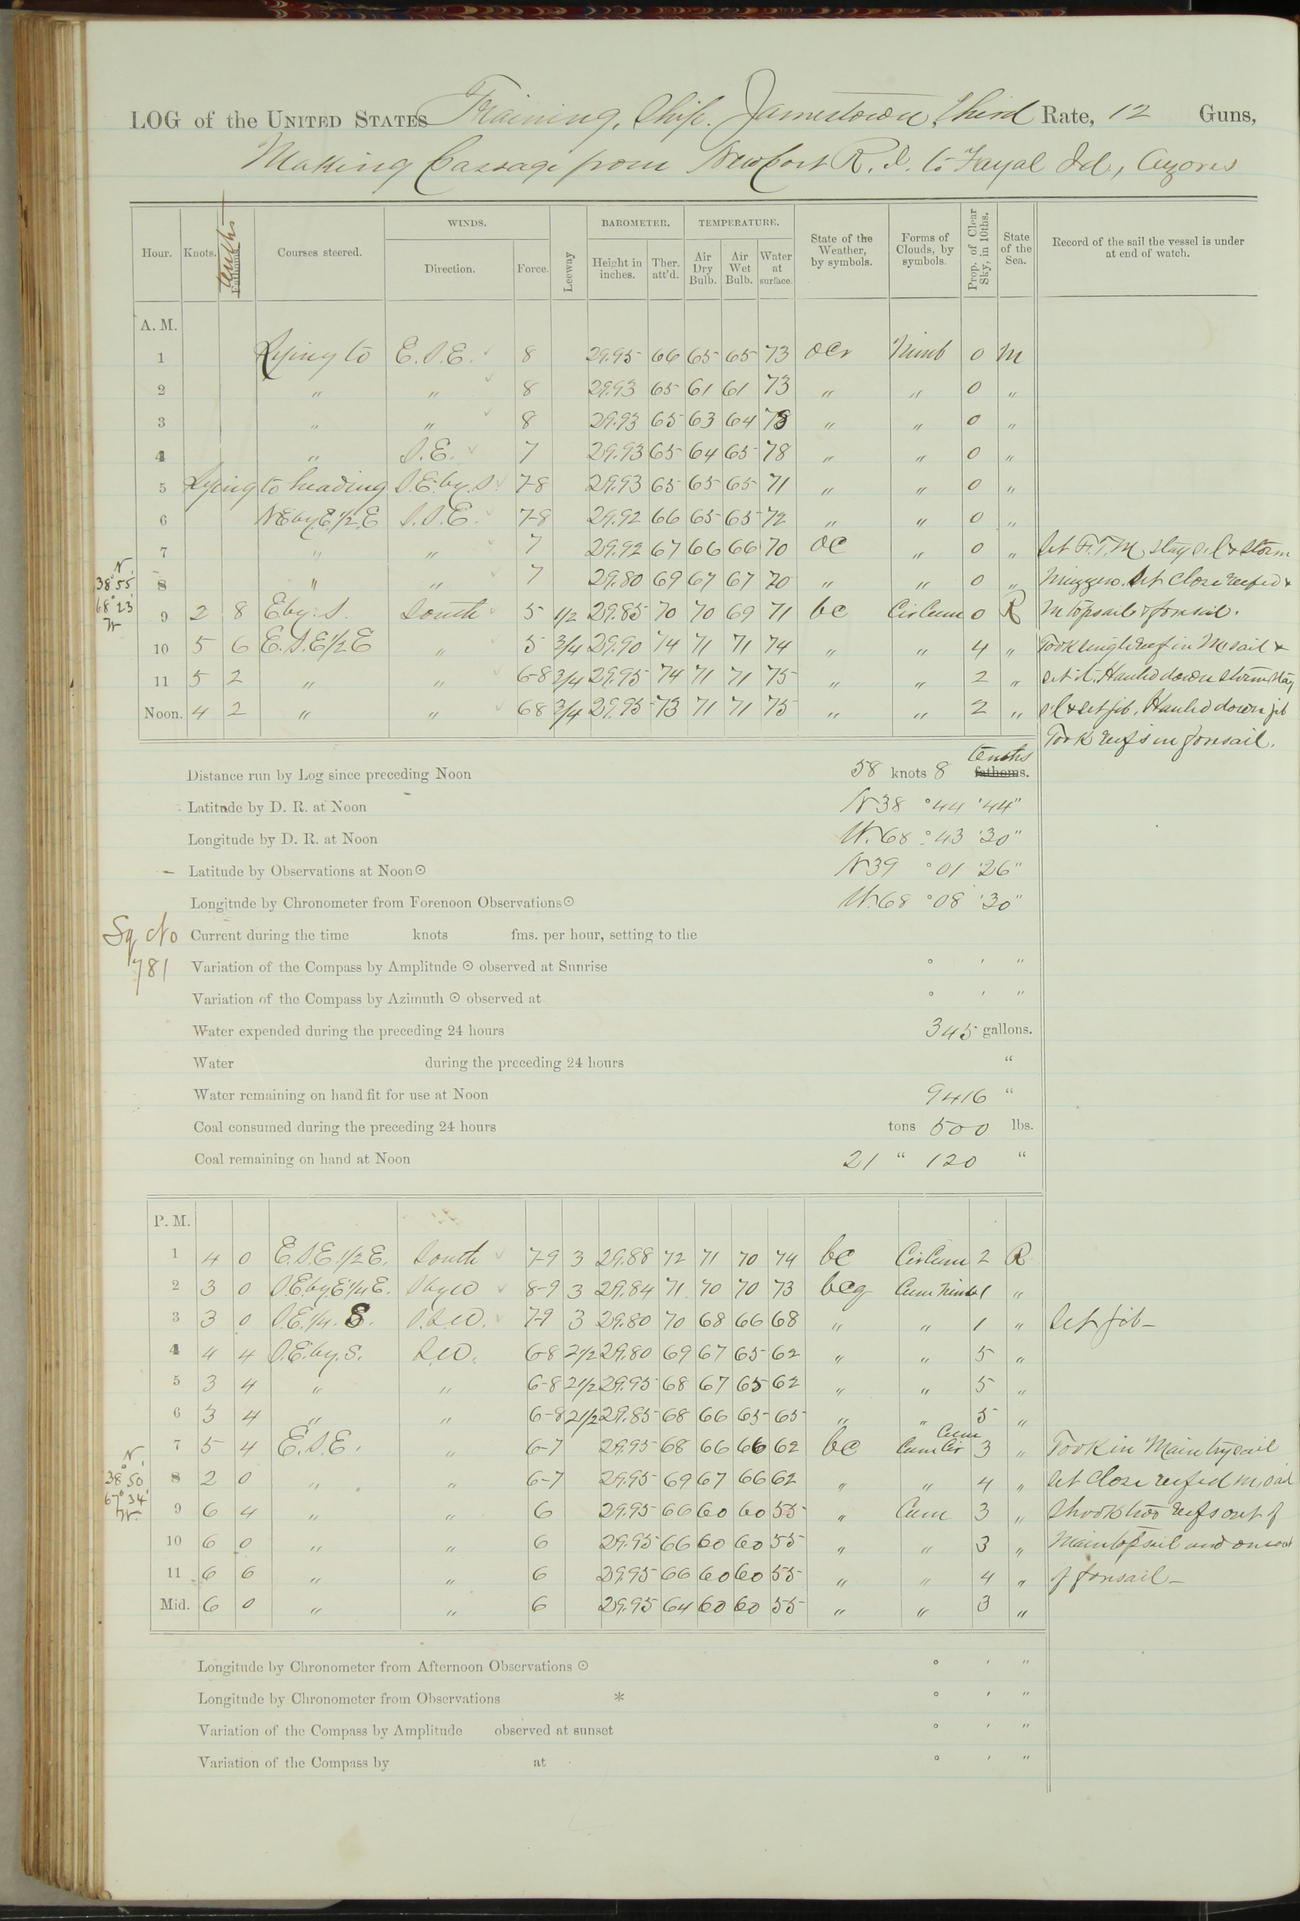 LOG of the UNITED STATES Training Ship Jamestown, third Rate, 12 Guns,
Making Passage from Newport R. I. to Fayal Id, Azores
Hour. Knots. tenths Fathoms. Courses steered. WINDS. Direction. Force. Leeway BAROMETER. Height in inches. Ther. att'd. TEMPERATURE. Air Dry Bulb. Air Wet Bulb. Water at surface. State of the Weather, by symbols. Forms of Clouds, by symbols. Prop. of Clear Sky, in 10ths. State of the Sea. Record of the sail the vessel is under at end of watch.
A. M.
1 Lying to E.S.E. 8 29.95 66 65 65 73 ocr Nimb 0 M
2 " " 8 29.93 65 61 61 73 " " 0 "
3 " " 8 29.93 65 63 64 78 " " 0 "
4 " S.E. 7 29.93 65 64 65 78 " " 0 "
5 Lying to heading S.E. by S. 7-8 29.93 65 65 65 71 " " 0 "
6 NEbyE 1/2 E S.S.E. 7-8 29.92 66 65 65 72 " " 0 "
7 " " 7 29.92 67 66 66 70 oc " 0 " Set F.T.M. stay sl & storm
N.
38°55'
68°23'
W
8 " " 7 29.80 69 67 67 70 " " 0 " Mizzen. Set close reefed
9 2 8 E by S. South 5 1/2 29.85 70 70 69 71 bc CirCum 0 R M topsail & foresail.
10 5 6 E.S.E 1/2 E " 5 3/4 29.90 74 71 71 74 " " 4 " Took single reef in M sail &
11 5 2 " " 6-8 3/4 29.95 74 71 71 75 " " 2 " set it. Hauled down storm stay
Noon. 4 2 " " 68 3/4 29.95 73 71 71 75 " " 2 " sl & set jib. Hauled down jib
Took reefs in foresail.
Distance run by Log since preceding Noon 58 knots 8 tenths fathoms.
Latitude by D. R. at Noon N 38 ° 44 ' 44 "
Longitude by D. R. at Noon W. 68 ° 43 ' 30 "
Latitude by Observations at Noon ⊙ N 39 ° 01 ' 26 "
Longitude by Chronometer from Forenoon Observations ⊙ W. 68 ° 08 ' 30 "
Sq No
781
Current during the time knots fms. per hour, setting to the
Variation of the Compass by Amplitude ⊙ observed at Sunrise ° ' "
Variation of the Compass by Azimuth ⊙ observed at ° ' "
Water expended during the preceding 24 hours 345 gallons.
Water during the preceding 24 hours "
Water remaining on hand fit for use at Noon 9416 "
Coal consumed during the preceding 24 hours tons 500 lbs.
Coal remaining on hand at Noon 21 " 120 "
P. M.
1 4 0 E.S.E. 1/2 E. South 7-9 3 29.88 72 71 70 74 bc CirCum 2 R
2 3 0 S.E. by E 1/4 E. S by W 8-9 3 29.84 71 70 70 73 bcq Cum Nimb 1 "
3 3 0 S.E. 1/4 S. S.S.W. 7-9 3 29.80 70 68 66 68 " " 1 " Set jib -
4 4 4 S.E. by S. S.W. 6-8 2 1/2 29.80 69 67 65 62 " " 5 "
5 3 4 " " 6-8 2 1/2 29.95 68 67 65 62 " " 5 "
6 3 4 " " 6-8 2 1/2 29.85 68 66 65 65 " " 5 "
7 5 4 E.S.E. " 6-7 29.95 68 66 66 62 bc Cum Cum Cir 3 " Took in Main trysail
N.
38°50'
67°34'
W
8 2 0 " " 6-7 29.95 69 67 66 62 " " 4 " set close reefed m sail
9 6 4 " " 6 29.95 66 60 60 55 " Cum 3 " shook two reefs out of
10 6 0 " " 6 29.95 66 60 60 55 " " 3 " Maintopsail and one out
11 6 6 " " 6 29.95 66 60 60 55 " " 4 " of foresail -
Mid. 6 0 " " 6 29.95 64 60 60 55 " " 3 "
Longitude by Chronometer from Afternoon Observations ⊙ ° ' "
Longitude by Chronometer from Observations * ° ' "
Variation of the Compass by Amplitude observed at sunset ° ' "
Variation of the Compass by at ° ' "